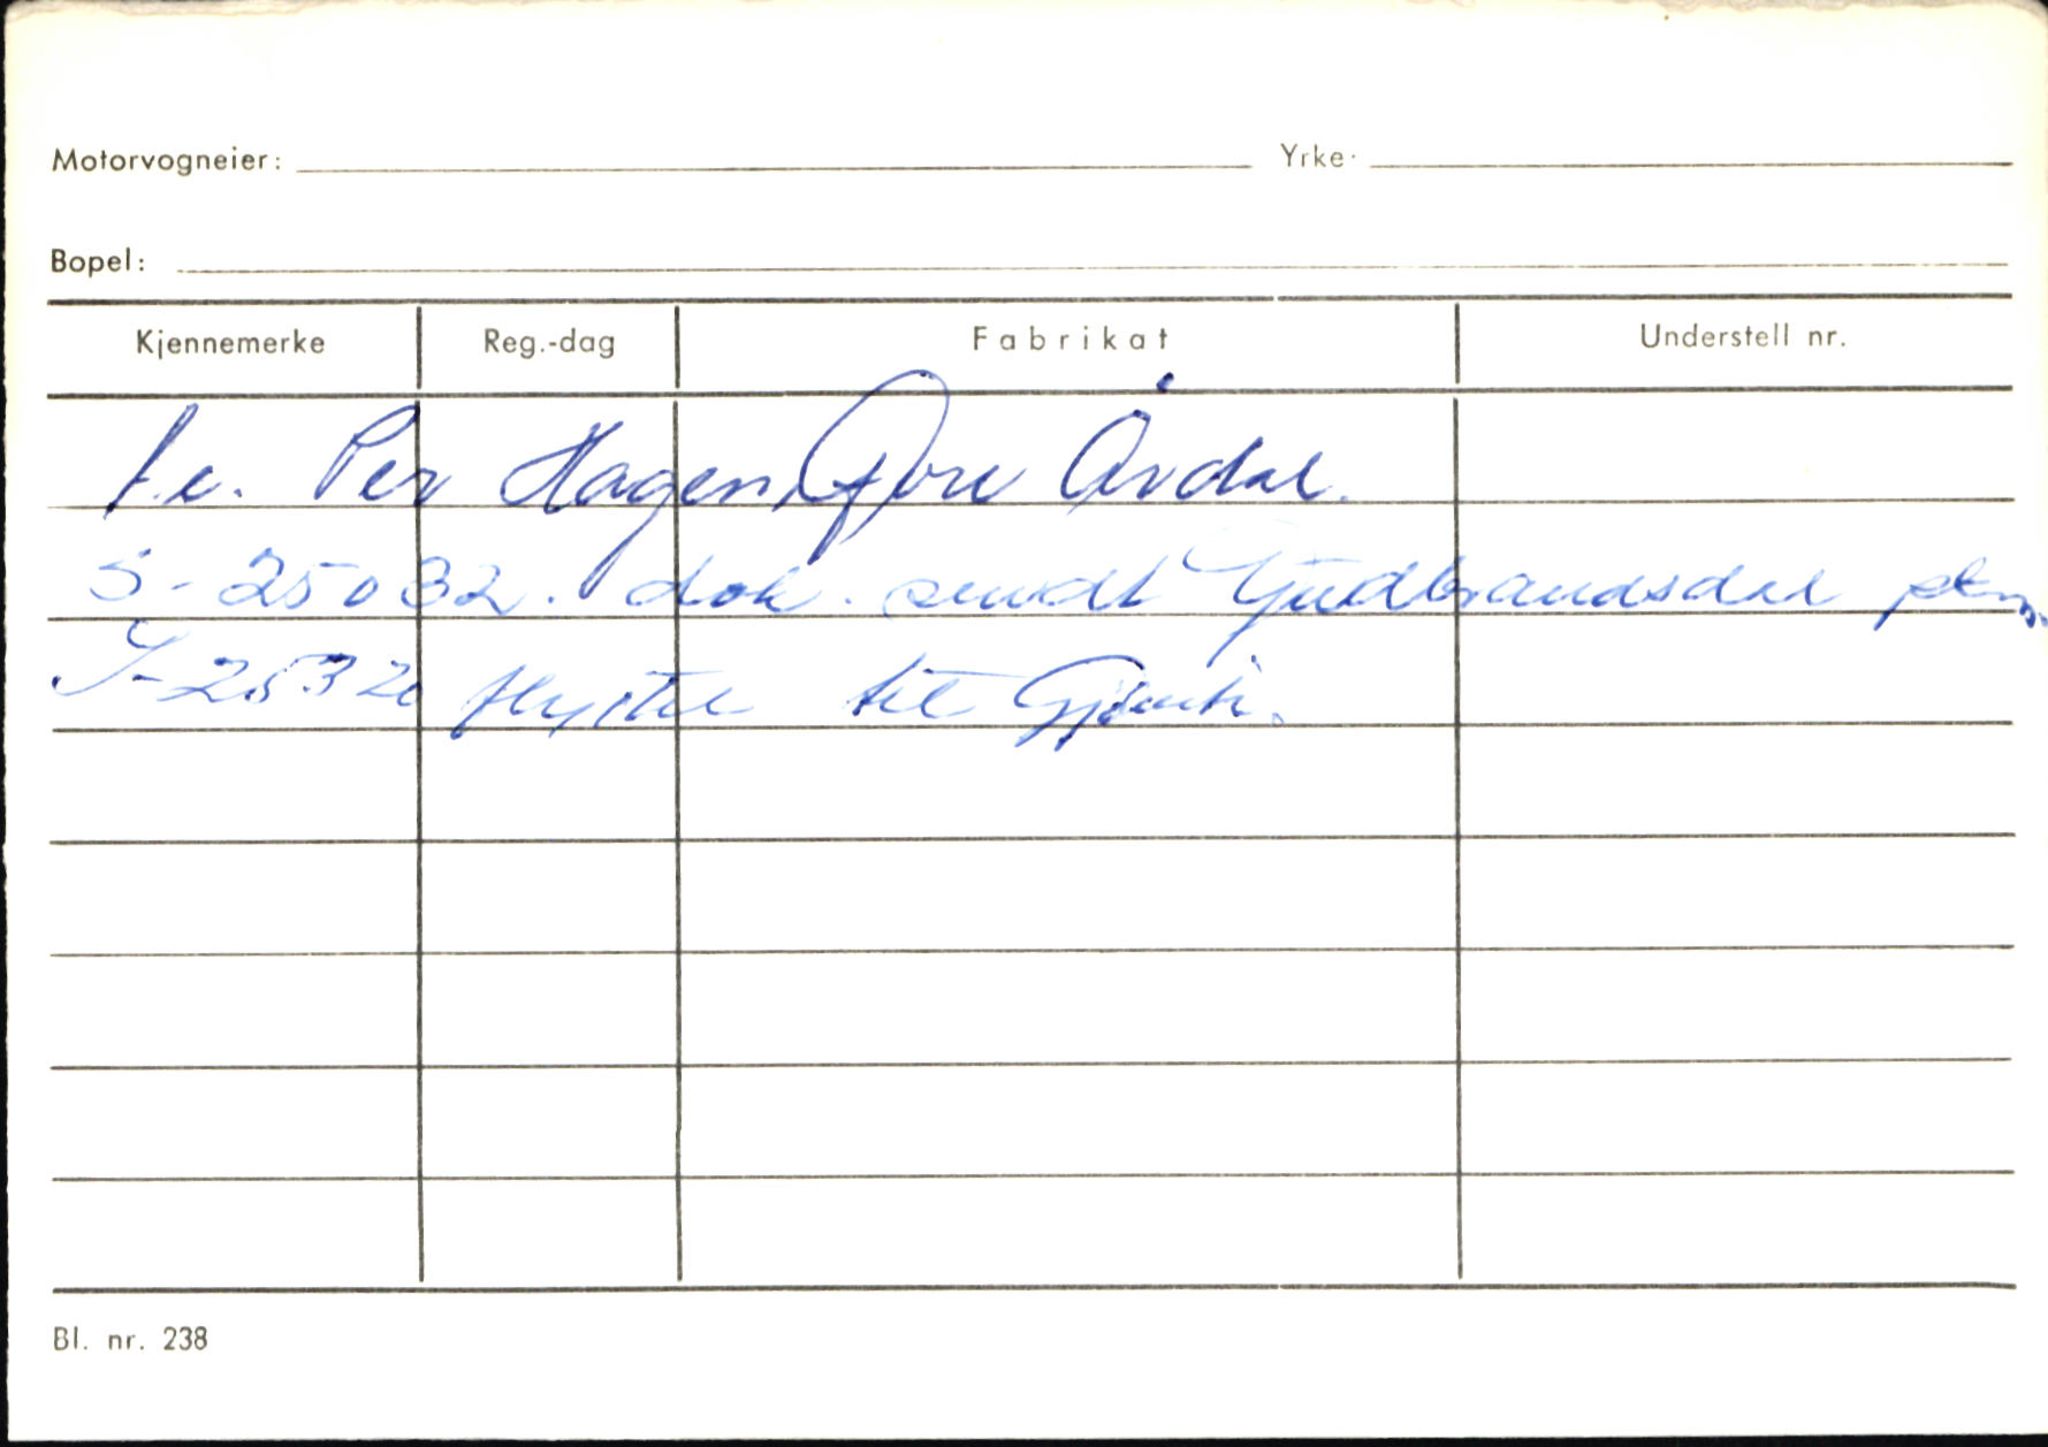 Motorvogneier: Yrke:
Bopel:
Kjennemerke Reg.-dag Fabrikat Understell nr.
Per Hagen, Øvre Årdal.
S-25032. dok. sendt Gudbrandsdal
flyttet til
Bl. nr. 238